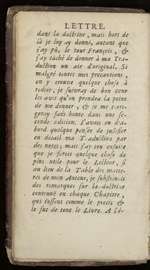 LETTRE
dans la doctrine, mais hors de
là je luy ay donné, autant que
j'ay pû, le tour François, &
j'ay tâché de donner à ma Tra-
duction un air d'original. Si
malgré toutes mes precautions,
on y trouve quelque chose à
redire, je suivray de bon cœur
les avis qu'on prendra la peine
de me donner, & je me corri-
geray sans honte dans une se-
conde édition. J'avois eu d'a-
bord quelque pensée de justifier
en détail ma Traduction par
des notes; mais j'ay cru ensuite
que je ferois quelque chose de
plus utile pour le Lecteur, si
au lieu de la Table des matie-
res de mon Auteur, je substituois
des remarques sur la doctrine
contenuë en chaque Chapitre,
qui fussent comme le precis &
le suc de tout le Livre. A l'é-